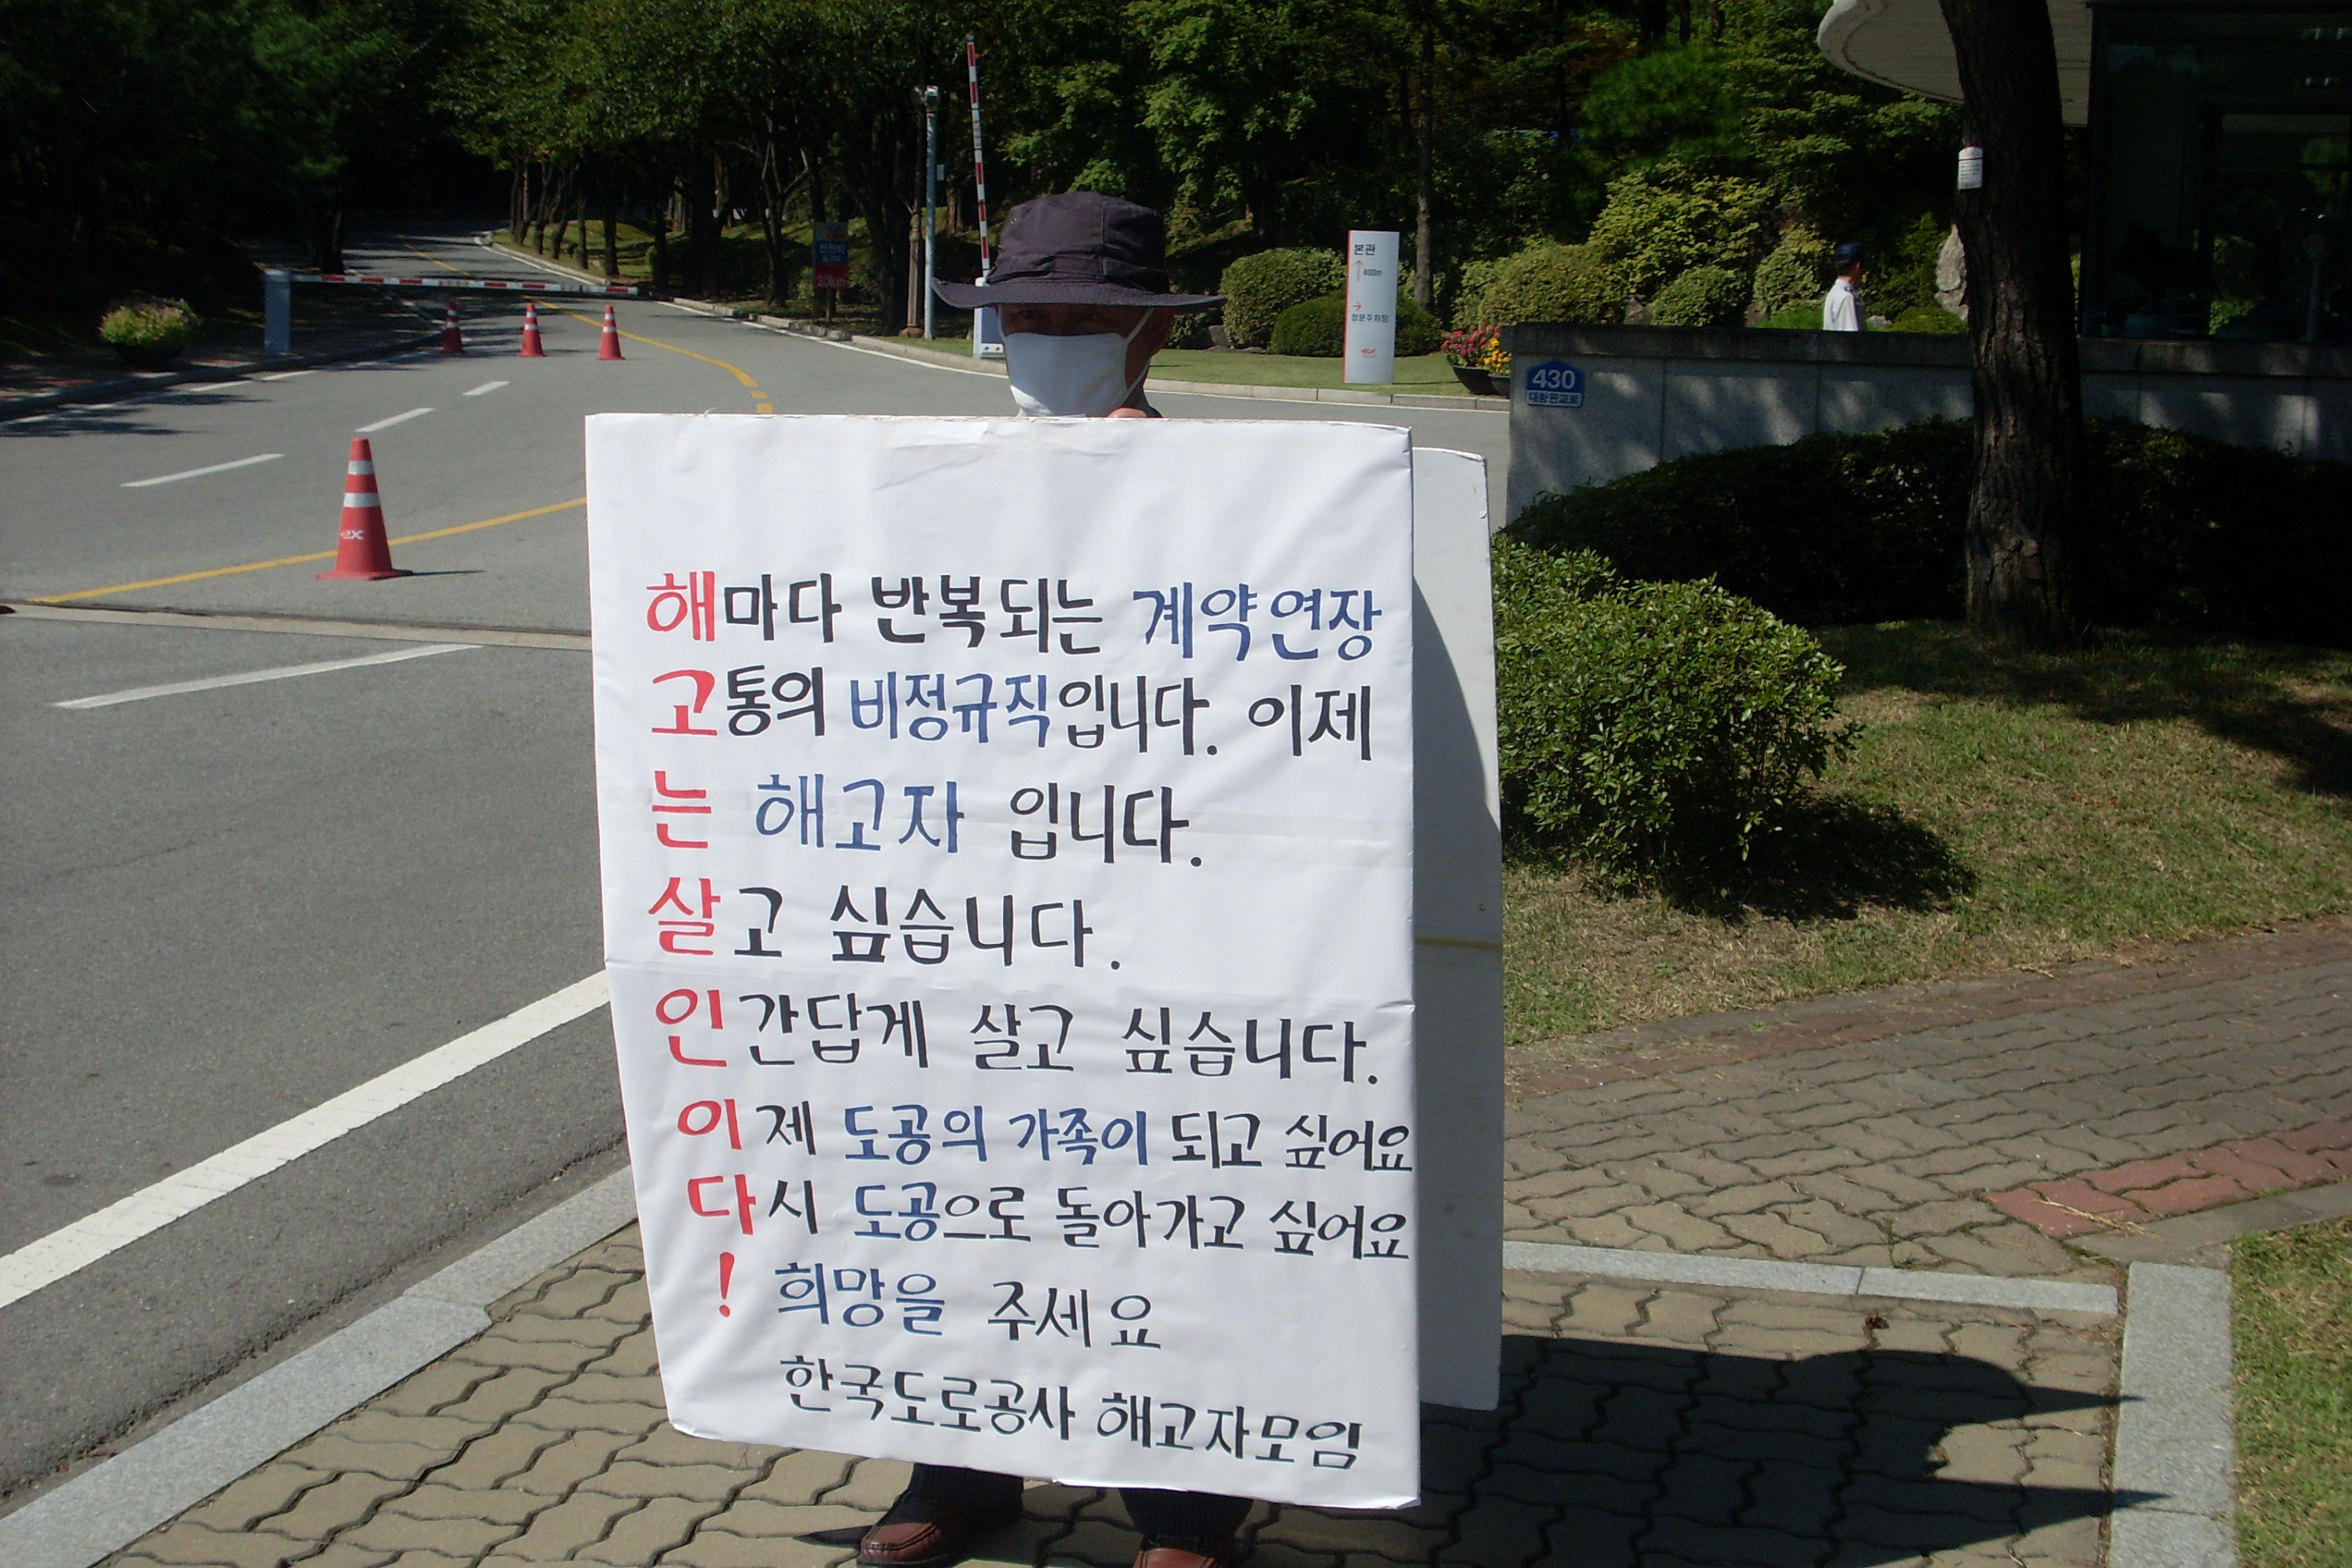 본관
400m
정문주차장
430
대왕판교로
ex
해마다 반복되는 계약연장
고통의 비정규직입니다. 이제
는 해고자 입니다.
살고 싶습니다.
인간답게 살고 싶습니다.
이제 도공의 가족이 되고 싶어요
다시 도공으로 돌아가고 싶어요
! 희망을 주세요
한국도로공사 해고자모임